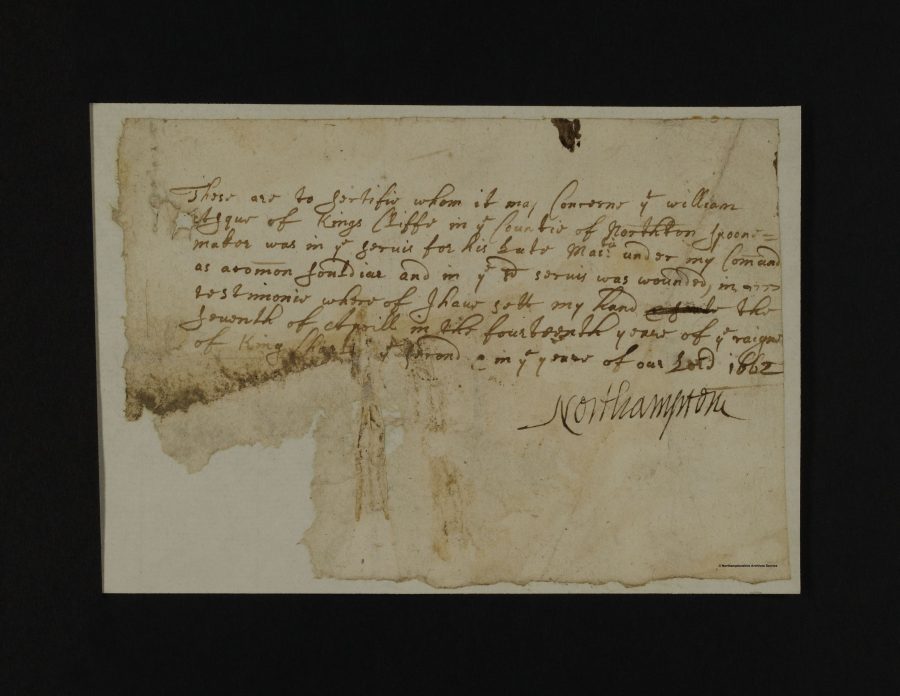 These are to sertifie whom it may Concerne yͤ william
of Kings Cliffe in yͤ Countie of Northton spoone=
maker was in yͤ servis for his Late Maᵗⁱᵉ under my Comand
as a comon souldiar and in yͤ sᵈ servis was wounded, in
testimonie where of I have sett my hand the
seventh of Aprill in the fourteenth yeare of yͤ raigne
of King yͤ second in yͤ yeare of our Lord 1662
Northampton
© Northamptonshire Archives Service